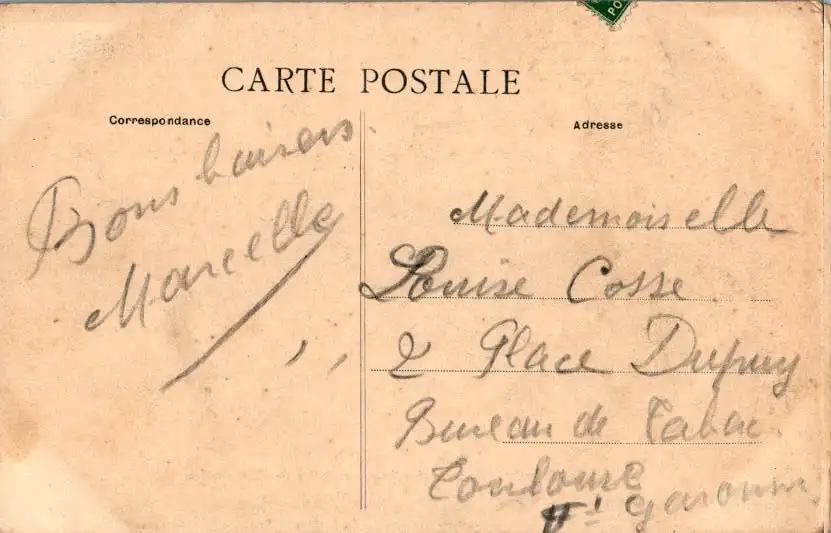 CARTE POSTALE
Correspondance
Bons baisers
Marcelle
Adresse
Mademoiselle
Louise Cosse
2 Place Dupuy
Bureau de Tabac
Toulouse
Hte Garonne